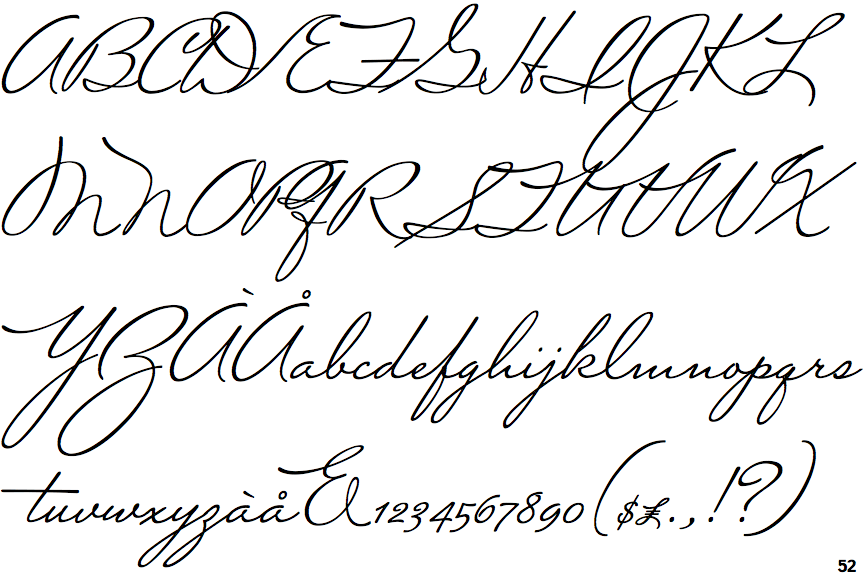 ABCDEFGHIJKL
MNOPQRSTUVWX
YZÀÅabcdefghijklmnopqrs
tuvwxyzàå&1234567890($£.,!?)
52